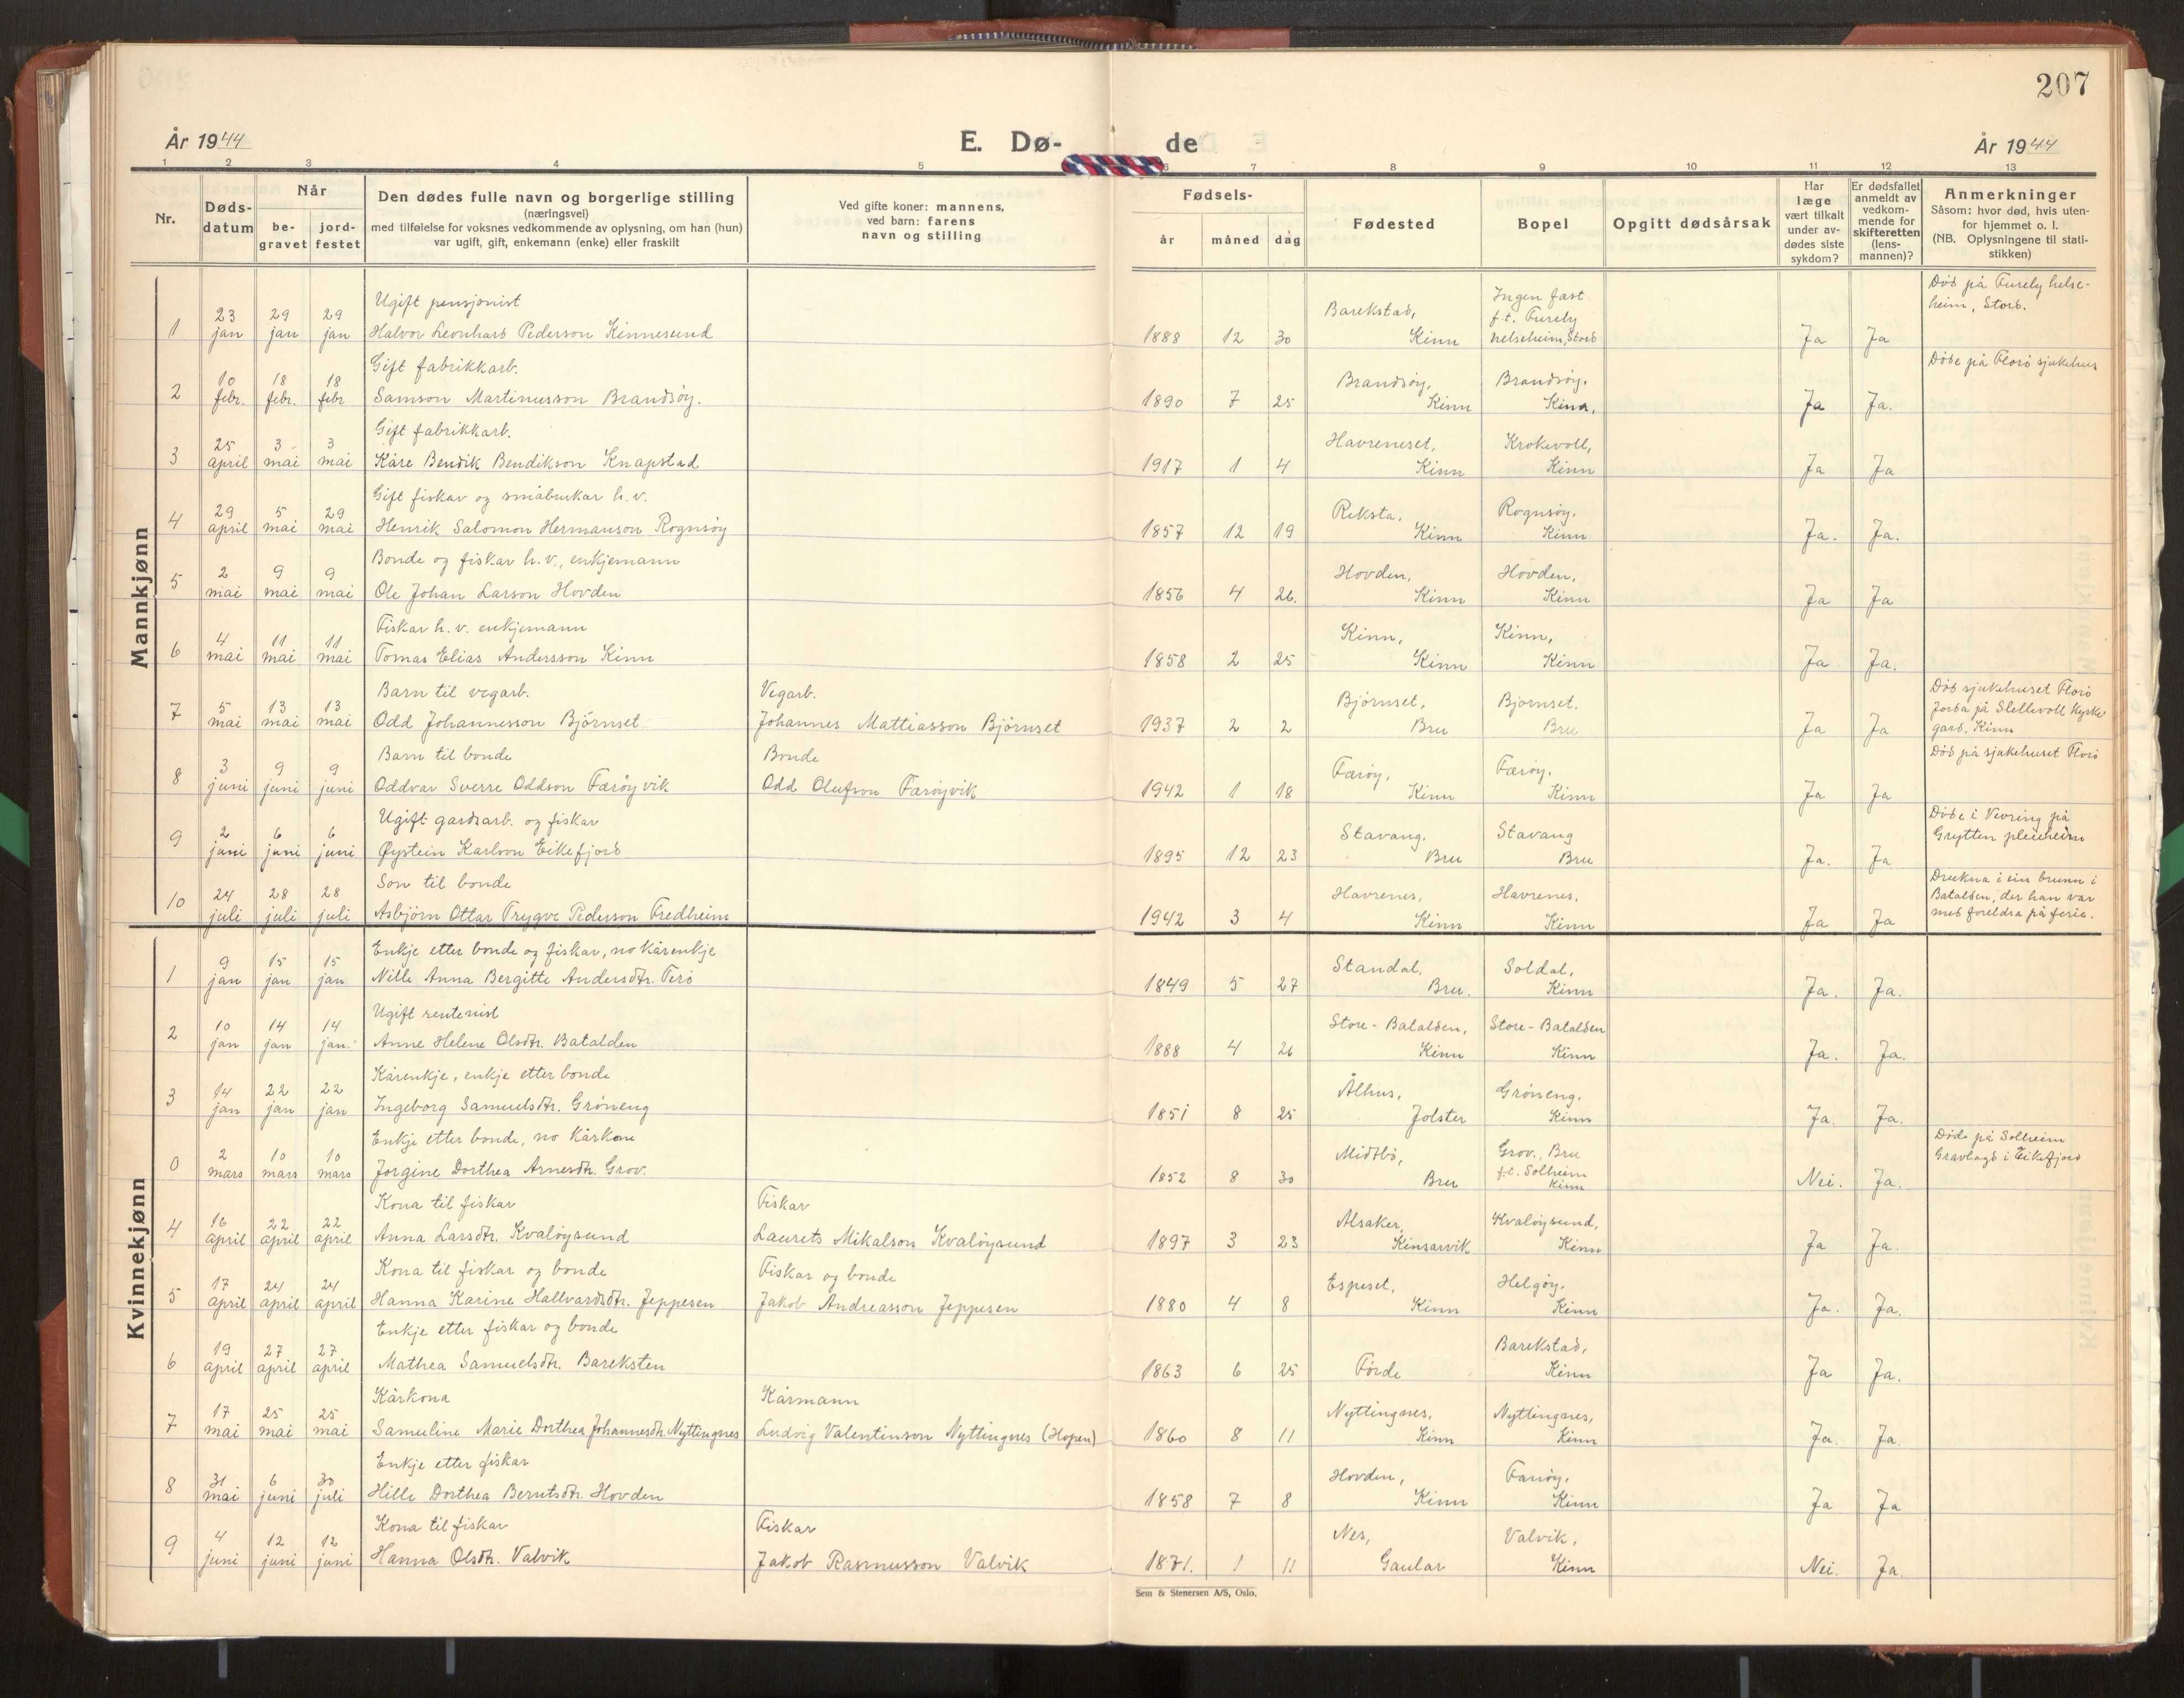 207
År 1944
E. Dø-
de
År 1944
1 2 3 4 5 6 7 8 9 10 11 12 13
Nr.
Døds-
datum
Når
be-
gravet
jord-
festet
Den dødes fulle navn og borgerlige stilling
(næringsvei)
med tilføielse for voksnes vedkommende av oplysning, om han (hun)
var ugift, gift, enkemann (enke) eller fraskilt
Ved gifte koner: mannens,
ved barn: farens
navn og stilling
Fødsels-
år måned dag
Fødested
Bopel
Opgitt dødsårsak
Har
læge
vært tilkalt
under av-
dødes siste
sykdom?
Er dødsfallet
anmeldt av
vedkom-
mende for
skifteretten
(lens-
mannen)?
Anmerkninger
Såsom: hvor død, hvis uten-
for hjemmet o. l.
(NB. Oplysningene til stati-
stikken)
Mannkjønn
1 23 jan 29 jan 29 jan
Ugift pensjonist
Halvor Leonhard Pederson Kinnesund
1888 12 30
Barekstad,
Kinn
Ingen fast
f.t. Furely
helseheim, Stord
Ja Ja
Død på Furely helse-
heim, Stord.
2 10 febr. 18 febr. 18 febr
Gift fabrikkarb.
Samson Martinusson Brandsøy.
1890 7 25
Brandsøy,
Kinn
Brandsøy.
Kinn,
Ja Ja.
Døde på Florø sjukehus
3 25 april 3 mai 3 mai
Gift fabrikkarb.
Kåre Bendik Bendikson Knapstad
1917 1 4
Havreneset,
Kinn
Krokevoll,
Kinn
Ja Ja
4 29 april 5 mai 29 mai
Gift fiskar og småbrukar h.v.
Henrik Salomon Hermanson Rognsøy
1857 12 19
Reksta,
Kinn
Rognsøy.
Kinn
Ja. Ja.
5 2 mai 9 mai 9 mai
Bonde og fiskar h.v., enkjemann
Ole Johan Larson Hovden
1856 4 26.
Hovden,
Kinn
Hovden,
Kinn
Ja Ja
6 4 mai 11 mai 11 mai
Fiskar h.v. enkjemann
Tomas Elias Andersson Kinn
1858 2 25
Kinn,
Kinn
Kinn,
Kinn
Ja Ja.
7 5 mai 13 mai 13 mai
Barn til vegarb.
Odd Johannesson Bjørnset
Vegarb.
Johannes Mattiasson Bjørnset
1937 2 2
Bjørnset,
Bru
Bjørnset.
Bru
Ja Ja
Død sjukehuset Florø
Jorda på Stellevoll kyrkje
gard. Kinn
8 3 juni 9 juni 9 juni
Barn til bonde
Oddvar Sverre Oddson Færøyvik
Bonde
Odd Olufson Færøyvik
1942 1 18
Færøy.
Kinn
Færøy.
Kinn
Ja Ja
Død på sjukehuset Florø
9 2 juni 6 juni 6 juni
Ugift gardsarb. og fiskar
Øystein Karlson Eikefjord
1895 12 23
Stavang.
Bru
Stavang
Bru
Ja. Ja
Døde i Vevring på
Grytten pleieheim
10 24 juli 28 juli 28 juli
Son til bonde
Asbjørn Ottar Trygve Pederson Fredheim
1942 3 4
Havrenes,
Kinn
Havrenes,
Kinn
Ja Ja
Drukna i ein brunn i
Batalden, der han var
med foreldra på ferie.
Kvinnekjønn
1 9 jan 15 jan 15 jan
Enkje etter bonde og fiskar, no kårenkje
Nille Anna Bergitte Andersdtr. Terø
1849 5 27
Standal,
Bru.
Soldal,
Kinn
Ja. Ja.
2 10 jan 14 jan 14 jan.
Ugift rentenist
Anne Helene Olsdtr. Batalden
1888 4 26
Store-Batalden,
Kinn
Store-Batalden
Kinn
Ja. Ja.
3 14 jan 22 jan 22 jan
Kårenkje, enkje etter bonde
Ingeborg Samuelsdtr. Grøneng
1851 8 25
Ålhus,
Jolster
Grøneng.
Kinn
Ja. Ja.
0 2 mars 10 mars 10 mars
Enkje etter bonde, no kårkone
Jorgine Dorthea Arnesdtr. Grov.
1852 8 30
Midtbø,
Bru
Grov., Bru
f.t. Solheim
Kinn
Nei. Ja.
Døde på Solheim
Gravlagd i Eikefjord
4 16 april 22 april 22 april
Kona til fiskar
Anna Larsdtr. Kvaløysund
Fiskar
Laurets Mikalson Kvaløysund
1897 3 23
Alsaker,
Kinsarvik
Kvaløysund,
Kinn
Ja Ja.
5 17 april 24 april 24 april
Kona til fiskar og bonde
Hanna Karine Hallvardsdtr. Jeppesen
Fiskar og bonde
Jakob Andreasson Jeppesen
1880 4 8
Espeset,
Kinn
Helgøy.
Kinn
Ja. Ja.
6 19 april 27 april 27 april
Enkje etter fiskar og bonde
Mathea Samuelsdtr. Bareksten
1863 6 25
Førde
Barekstad,
Kinn
Ja Ja.
7 17 mai 25 mai 25 mai
Kårkona
Samuline Marie Dorthea Johannesdtr. Nyttingnes
Kårmann
Ludvig Valentinson Nyttingnes (Hopen)
1860 8 11
Nyttingnes,
Kinn
Nyttingnes,
Kinn
Ja. Ja
8 31 mai 6 juni 30 juli
Enkje etter fiskar
Hille Dorthea Berntsdtr. Hovden
1858 7 8
Hovden,
Kinn
Fanøy.
Kinn
Ja Ja
9 4 juni 12 juni 12 juni
Kona til fiskar
Hanna Olsdtr. Valvik
Fiskar
Jakob Rasmusson Valvik
1871. 1 11
Nes,
Gaular
Valvik,
Kinn
Nei. Ja.
Sem & Stenersen A/S, Oslo.